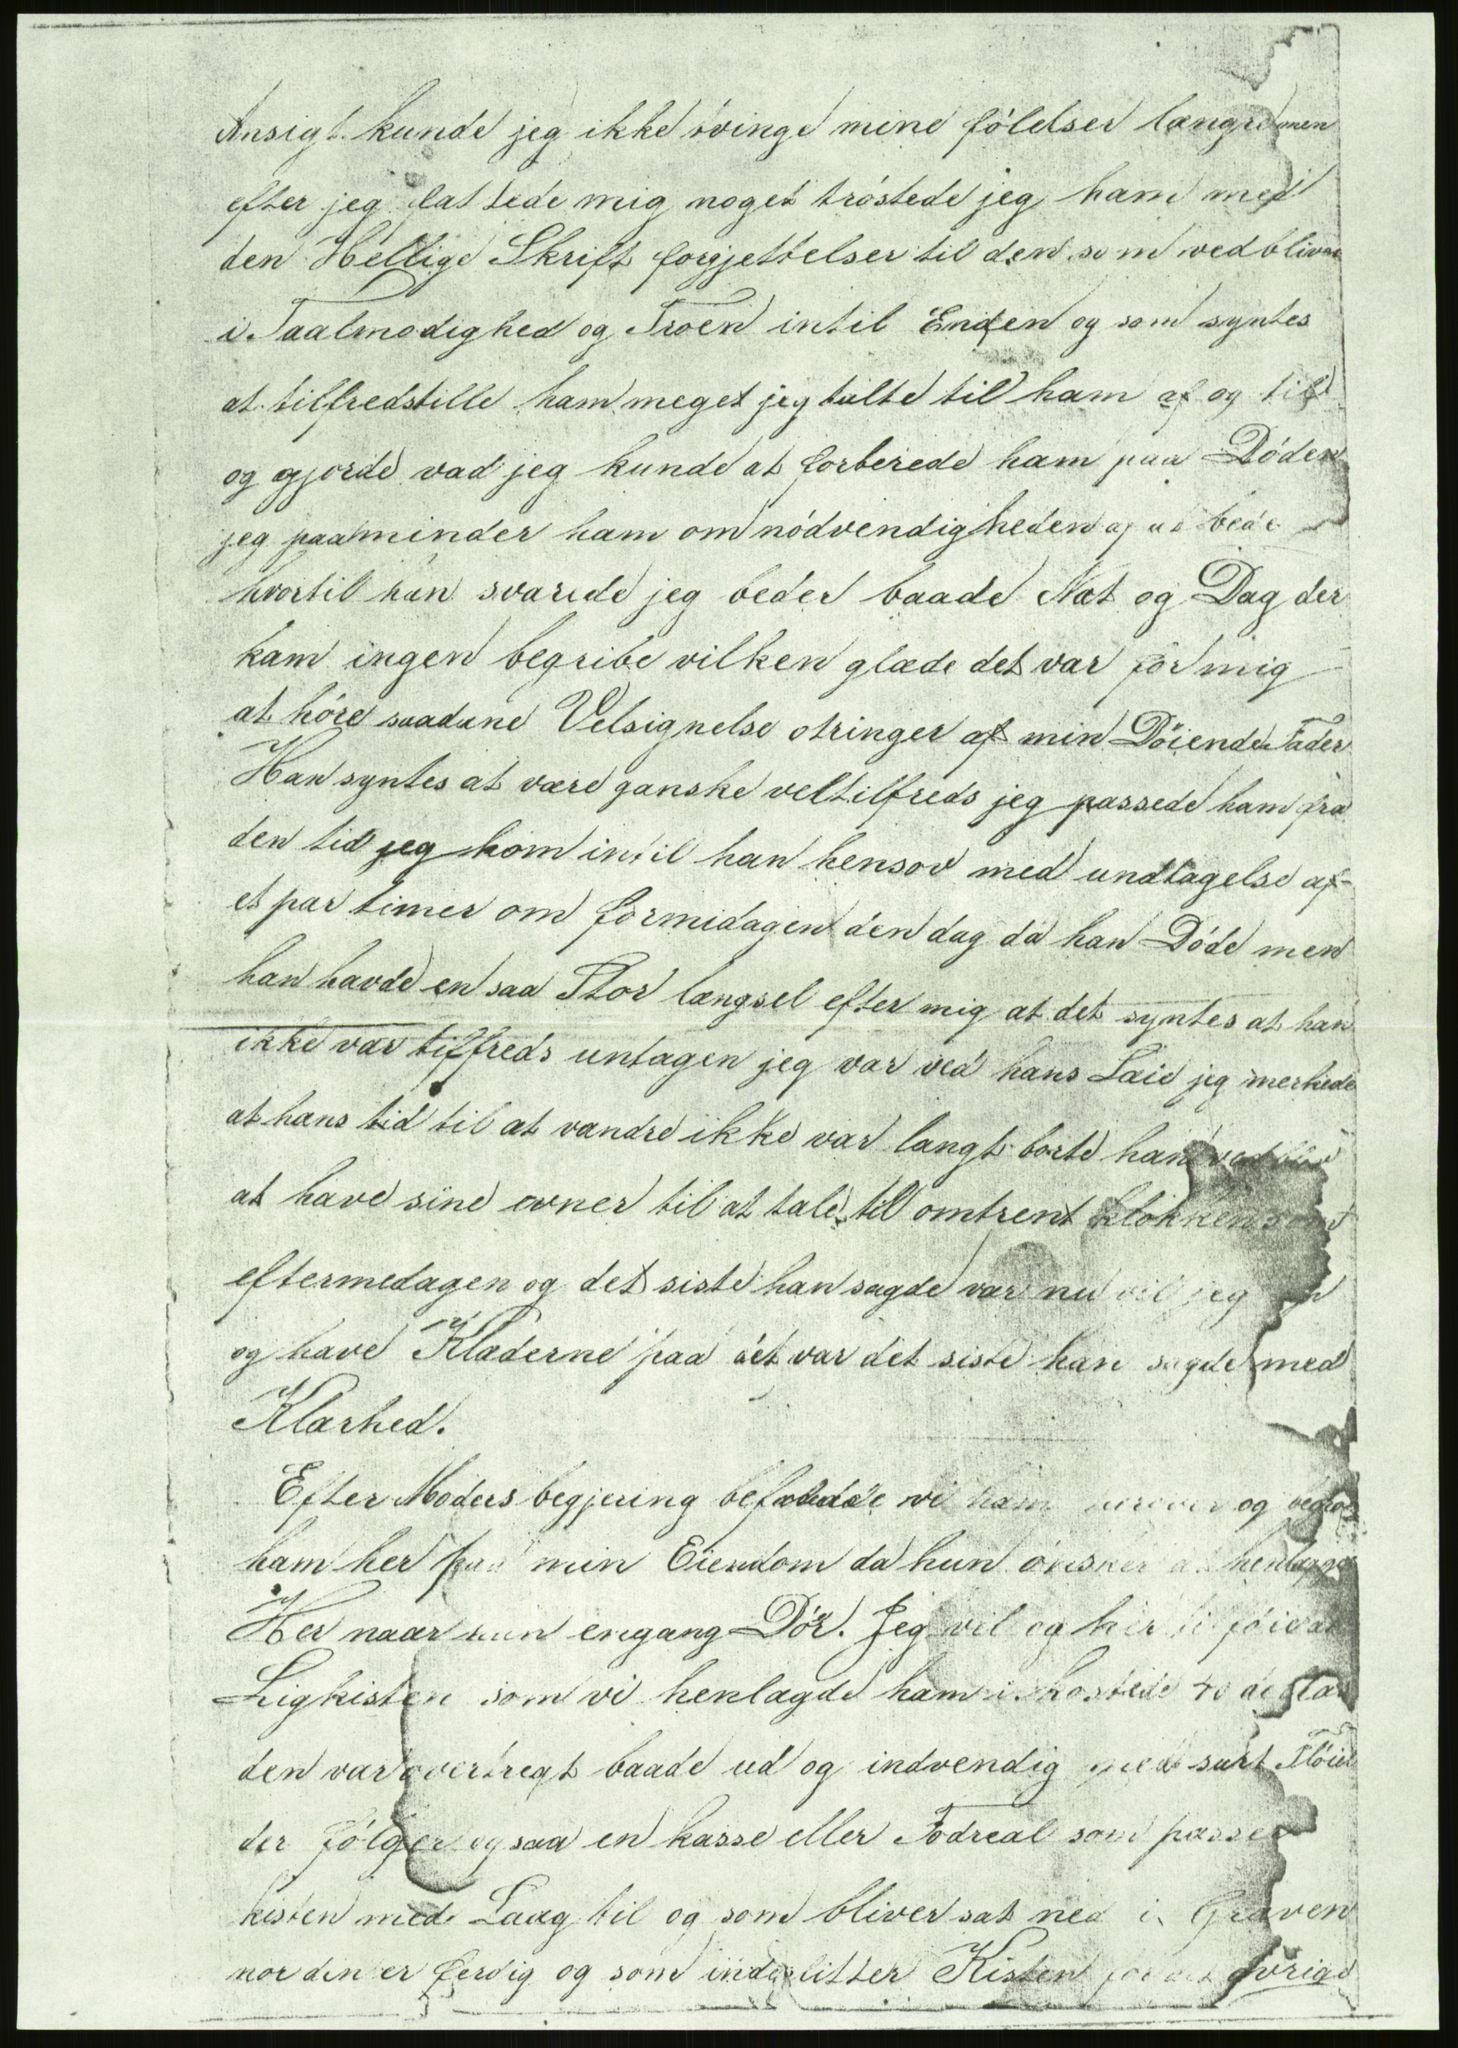 Ansigt kunde jeg ikke tvinge mine fölelser længre men
efter jeg fattede mig noget tröstede jeg ham med
den Hellige Skrift forgjettelser til den som vedbliver
i Taalmodighed og Troen intil Enden og som syntes
at tilfredstille ham meget jeg talte til ham af og til
og gjorde vad jeg kunde at forberede ham paa Döden
jeg paaminder ham om nödvendigheden af at bede
hvortil han svarede jeg beder baade Nat og Dag der
kam ingen begribe vilken glæde det var for mig
at höre saadane Velsignelse otringer af min Döiende Fader
Han syntes at være ganske veltilfreds jeg passede ham fra
den tid jeg kom intil han hensov med undtagelse af
et par timer om formidagen den dag da han Döde men
han havde en saa Stor længsel efter mig at det syntes at han
ikke var tilfreds untagen jeg var ved hans Leie jeg merkede
at hans tid til at vandre ikke var langt borte han vedblev
at have sine evner til at tale til omtrent klokken
eftermedagen og det siste han sagde var nu vil jeg
og have Klæderne paa det var det siste han sagde med
Klarhed.
Efter Moders begjering befordrede vi ham herover og begrov
ham her paa min Eiendom da hun önsker at henlægges
Her naar hun engang Dör. Jeg vil og her tilföie at
Ligkisten som vi henlagde ham i kostede 40 dollar
den var overtregt baade ud og indvendig med sort Flöiel
der fölger ogsaa en kasse eller Fodreal som passer
kisten med Laag til og som bliver sat ned i Graven
nor den er ferdig og som indeslitter Kisten for det övrige